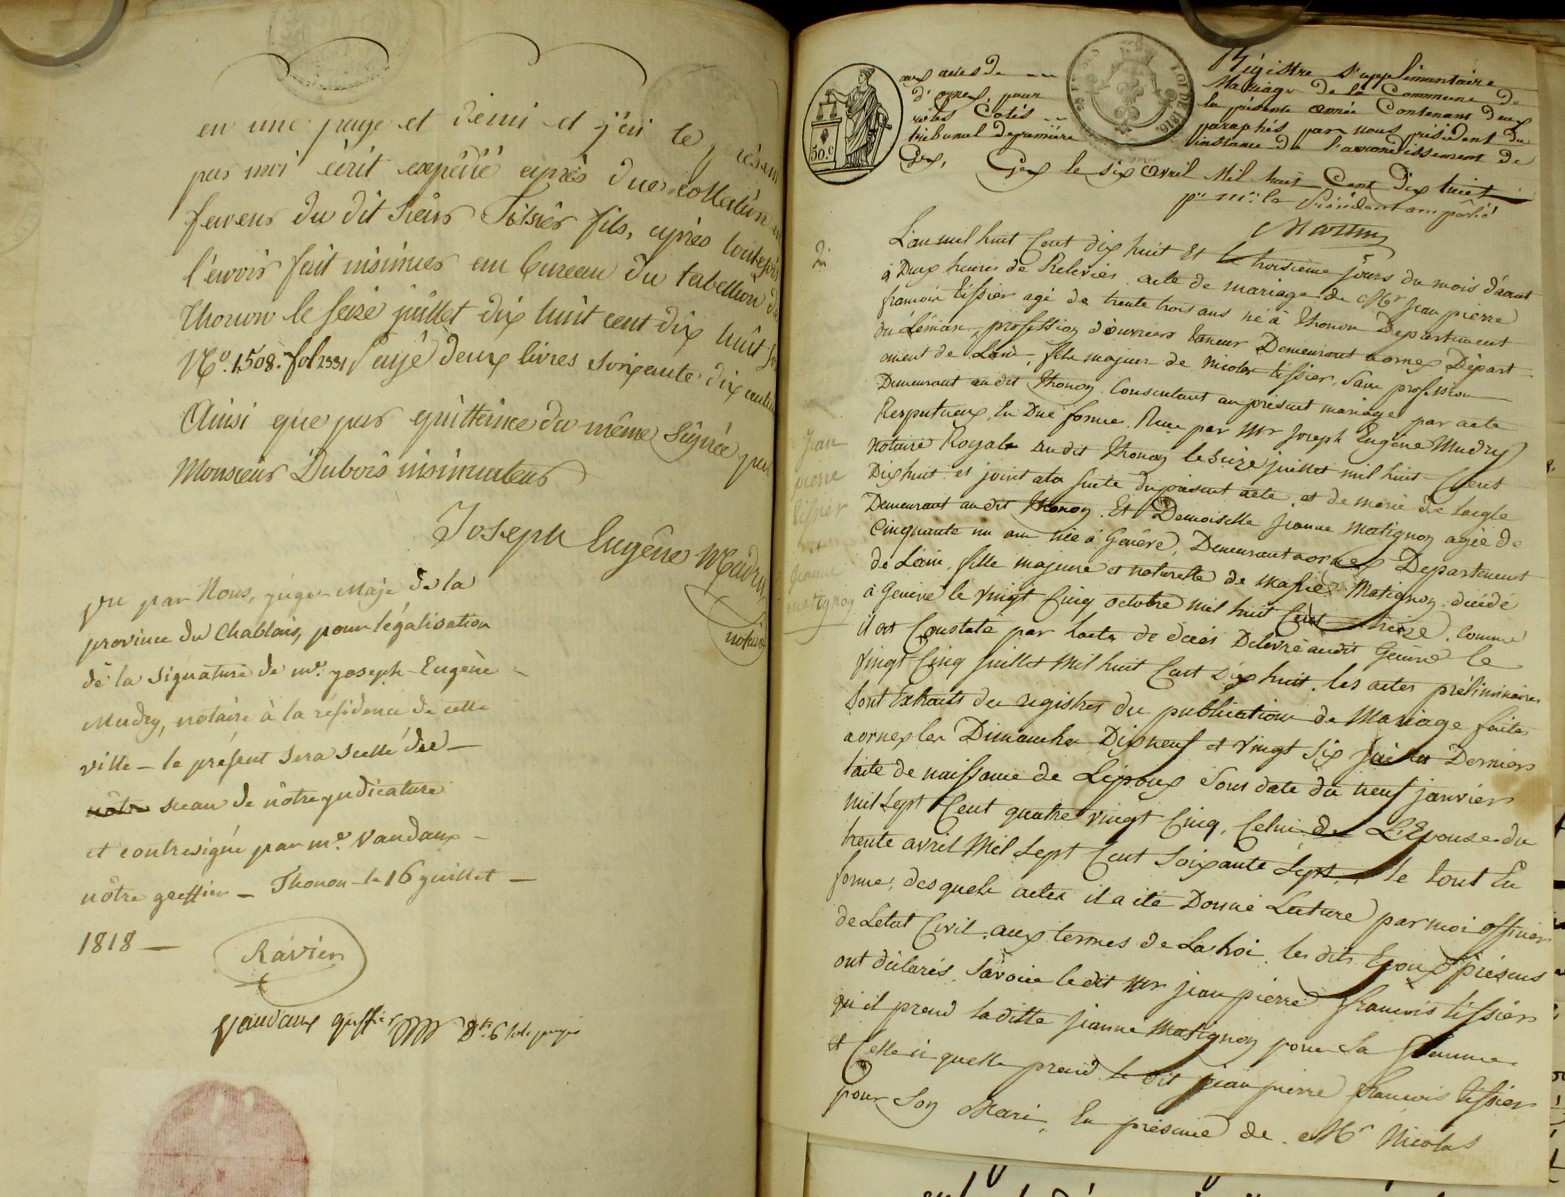 en une page et demi et j'ai le présent
par moi écrit expédié après due collation
faveur du dit Sieur Tissier fils, après toutefois
l'envoir fait insinuer au bureau du tabellion de
Thonon le seize juillet dix huit cent dix huit
N.º 1508. fol 2551 payé deux livres soixante dix
Ainsi que par quittance du même Signée par
Monsieur Dubois insinuateur
Joseph Eugêne Mudry
notaire
Vu par Nous, juge-Maje de la
province du Chablais, pour légalisation
dè la signature de mr. joseph-Eugène
Mudry, notaire à la résidence de cette
ville — le présent sera scellé
nôtre sceau de nôtre judicature
et contresigné par mr. Vaudaux
nôtre greffier — Thonon le 16 juillet —
1818 —
Ravier
Vaudaux greffier
aux actes de
d'ornex, pour
rôles Cotés
tribunal de première
Gex,
Régistre Supplémentaire
Mariage de la Commune de
la présente année Contenant deux
paraphés par nous président du
instance de l'arrondissement de
LOI DE 1816
50 c
Gex le six avril Mil huit Cent Dix huit
pr mr. le Président empêché
Martin
L'an mil huit Cent dix huit et le troisième Jour du mois d'aout
à Deux heures de Relevée. acte de mariage de Mr Jean pierre
françois tissier agé de trente trois ans né à thonon Departement
du Léman, profession d'ouvrier tanneur Demeurant a ornex Départ
ement de Lain, fils majeur de nicolas tissier, Sans profession
Demeurant au dit Thonon. Consentant au présent mariage par acte
Respectueux, En Due forme, Reçu par Mr Joseph Eugene Mudry
notaire Royale audit Thonon le seize juillet mil huit Cent
Dix huit et joint a la suite du present acte, et de marie de laigle
Demeurant au dit Thonon. Et Demoiselle jeanne Matignon agée de
Cinquante un ans née à Geneve, Demeurant a ornex Departement
de Lain, fille majeure et naturelle de Matignon. décédé
à Genève le vingt Cinq octobre mil huit Cent treize. Comme
il est Constaté par lacte de décès Délivré audit Genève le
vingt Cinq Juillet Mil huit Cent Dix huit, les actes préliminaires
Sont Extraits des registres du publication de Mariage faites
a ornex les Dimanches Dix neuf et vingt Six juillet Dernier
lacte de naissance de L'époux Sous date du neuf janvier
mil Sept Cent quatre vingt Cinq, Celui de L'Epouse du
trente avril Mil Sept Cent Soixante Sept, le tout En
forme, desquels actes il a été Donné Lecture par moi officier
de L'etat Civil, aux termes de La Loi. les dits Epoux présens
ont déclarés, Savoir le dit Mr jean pierre françois tissier
qu'il prend la ditte jeanne Matignon pour Sa Femme
et Celle ci quelle prend le dit jean pierre francois tissier
pour Son Mari, En présence de Mr Nicolas
Jean
pierre
tissier
Jeanne
matignon